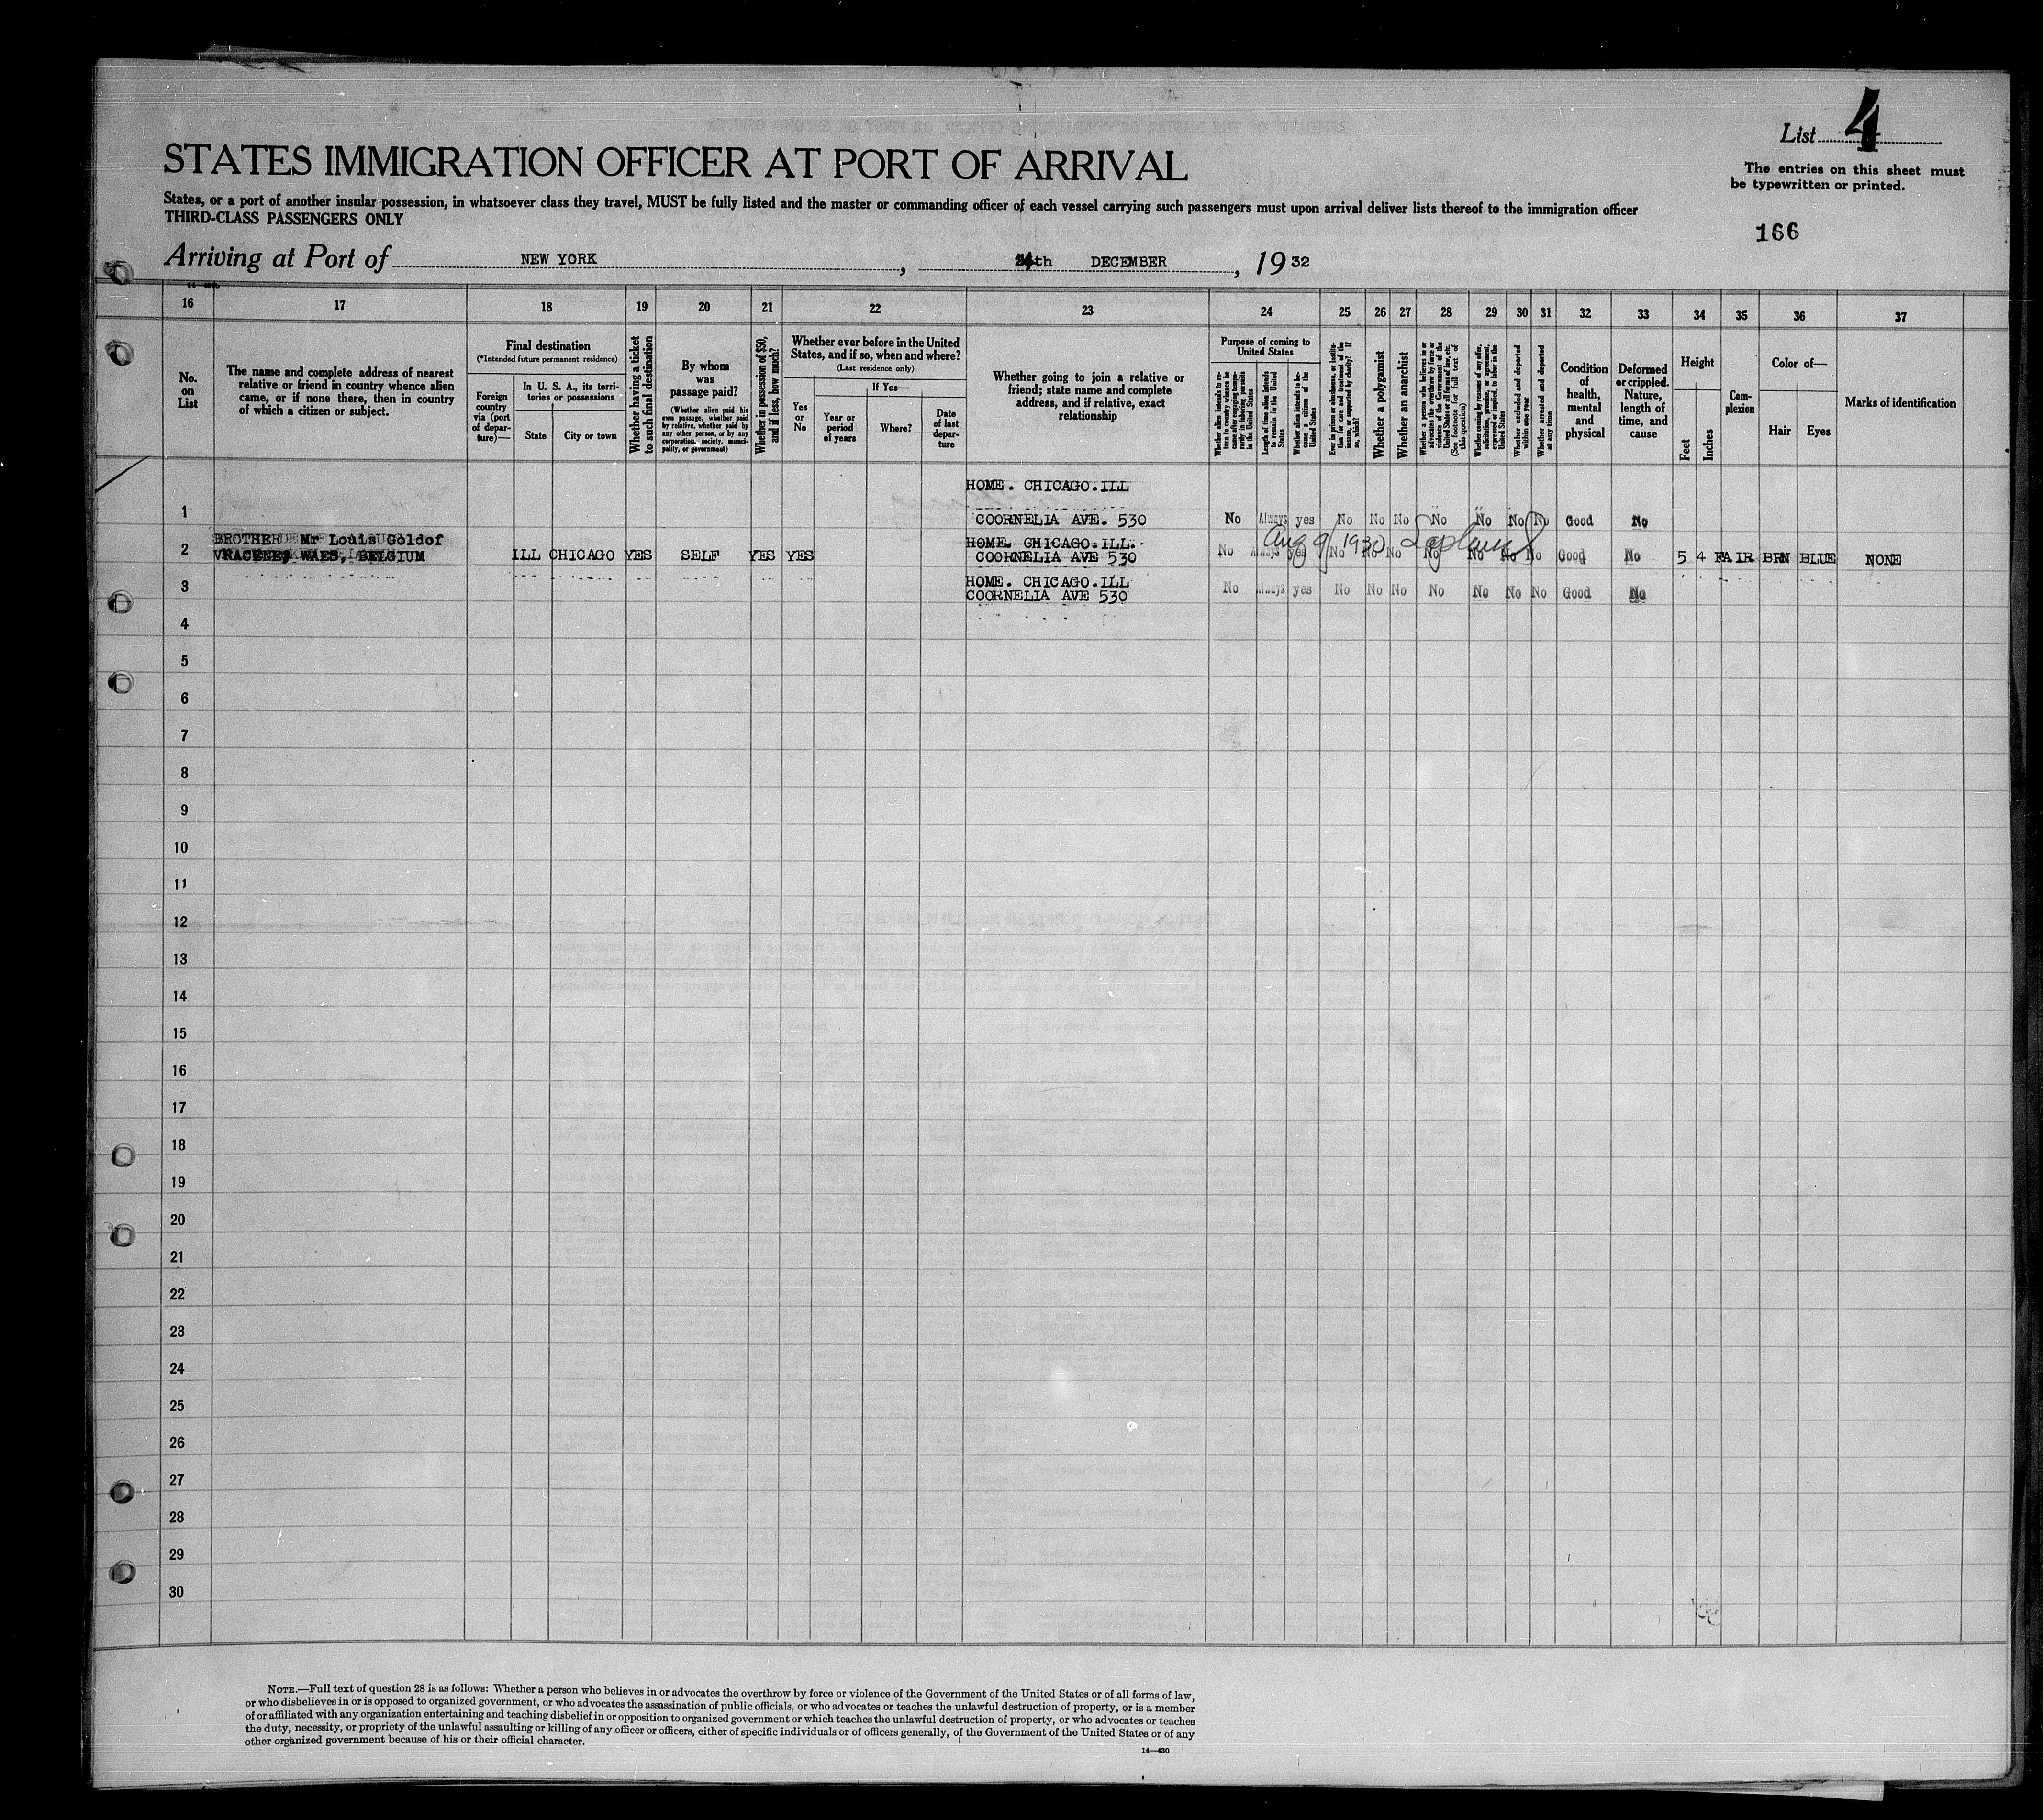 List 4
STATES IMMIGRATION OFFICER AT PORT OF ARRIVAL
The entries on this sheet must
be typewritten or printed.
States, or a port of another insular possession, in whatsoever class they travel, MUST be fully listed and the master or commanding officer of each vessel carrying such passengers must upon arrival deliver lists thereof to the immigration officer
THIRD-CLASS PASSENGERS ONLY
166
Arriving at Port of NEW YORK, th DECEMBER, 1932
16 17 18 19 20 21 22 23 24 25 26 27 28 29 30 31 32 33 34 35 36 37
No.
on
List
The name and complete address of nearest
relative or friend in country whence alien
came, or if none there, then in country
of which a citizen or subject.
Final destination
(*Intended future permanent residence)
Foreign
country
via (port
of depar-
ture)—
In U. S. A., its terri-
tories or possessions
State
City or town
Whether having a ticket
to such final destination
By whom
was
passage paid?
(Whether alien paid his
own passage, whether paid
by relative, whether paid by
any other person, or by any
corporation, society, munici-
pality, or government)
Whether in possession of $50,
and if less, how much?
Whether ever before in the United
States, and if so, when and where?
(Last residence only)
Yes
or
No
If Yes—
Year or
period
of years
Where?
Date
of last
depar-
ture
Whether going to join a relative or
friend; state name and complete
address, and if relative, exact
relationship
Purpose of coming to
United States
Whether alien intends to re-
turn to country whence he
came after engaging tempo-
rarily in laboring pursuits
in the United States
Length of time alien intends
to remain in the United
States
Whether alien intends to be-
come a citizen of the
United States
Ever in prison or almshouse, or institu-
tion for care and treatment of the
insane, or supported by charity? If
so, which?
Whether a polygamist
Whether an anarchist
Whether a person who believes in or
advocates the overthrow by force or
violence of the Government of the
United States or all forms of law, etc.
(See footnote for full text of
this question)
Whether coming by reason of any offer,
solicitation, promise, or agreement,
expressed or implied, to labor in the
United States
Whether excluded and deported
within one year
Whether arrested and deported
at any time
Condition
of
health,
mental
and
physical
Deformed
or crippled.
Nature,
length of
time, and
cause
Height
Feet
Inches
Com-
plexion
Color of—
Hair
Eyes
Marks of identification
HOME. CHICAGO.ILL
1 COORNELIA AVE. 530 No Always yes No No No No No No No Good No
BROTHER Mr Louis Goldof HOME. CHICAGO.ILL. Aug 9/1930
2 WAES, BELGIUM ILL CHICAGO YES SELF YES YES COORNELIA AVE 530 No Always yes No No No No No No No Good No 5 4 FAIR BRN BLUE NONE
HOME. CHICAGO.ILL
3 COORNELIA AVE 530 No Always yes No No No No No No No Good No
4
5
6
7
8
9
10
11
12
13
14
15
16
17
18
19
20
21
22
23
24
25
26
27
28
29
30
NOTE.—Full text of question 28 is as follows: Whether a person who believes in or advocates the overthrow by force or violence of the Government of the United States or of all forms of law,
or who disbelieves in or is opposed to organized government, or who advocates the assassination of public officials, or who advocates or teaches the unlawful destruction of property, or is a member
of or affiliated with any organization entertaining and teaching disbelief in or opposition to organized government or which teaches the unlawful destruction of property, or who advocates or teaches
the duty, necessity, or propriety of the unlawful assaulting or killing of any officer or officers, either of specific individuals or of officers generally, of the Government of the United States or of any
other organized government because of his or their official character.
14—430